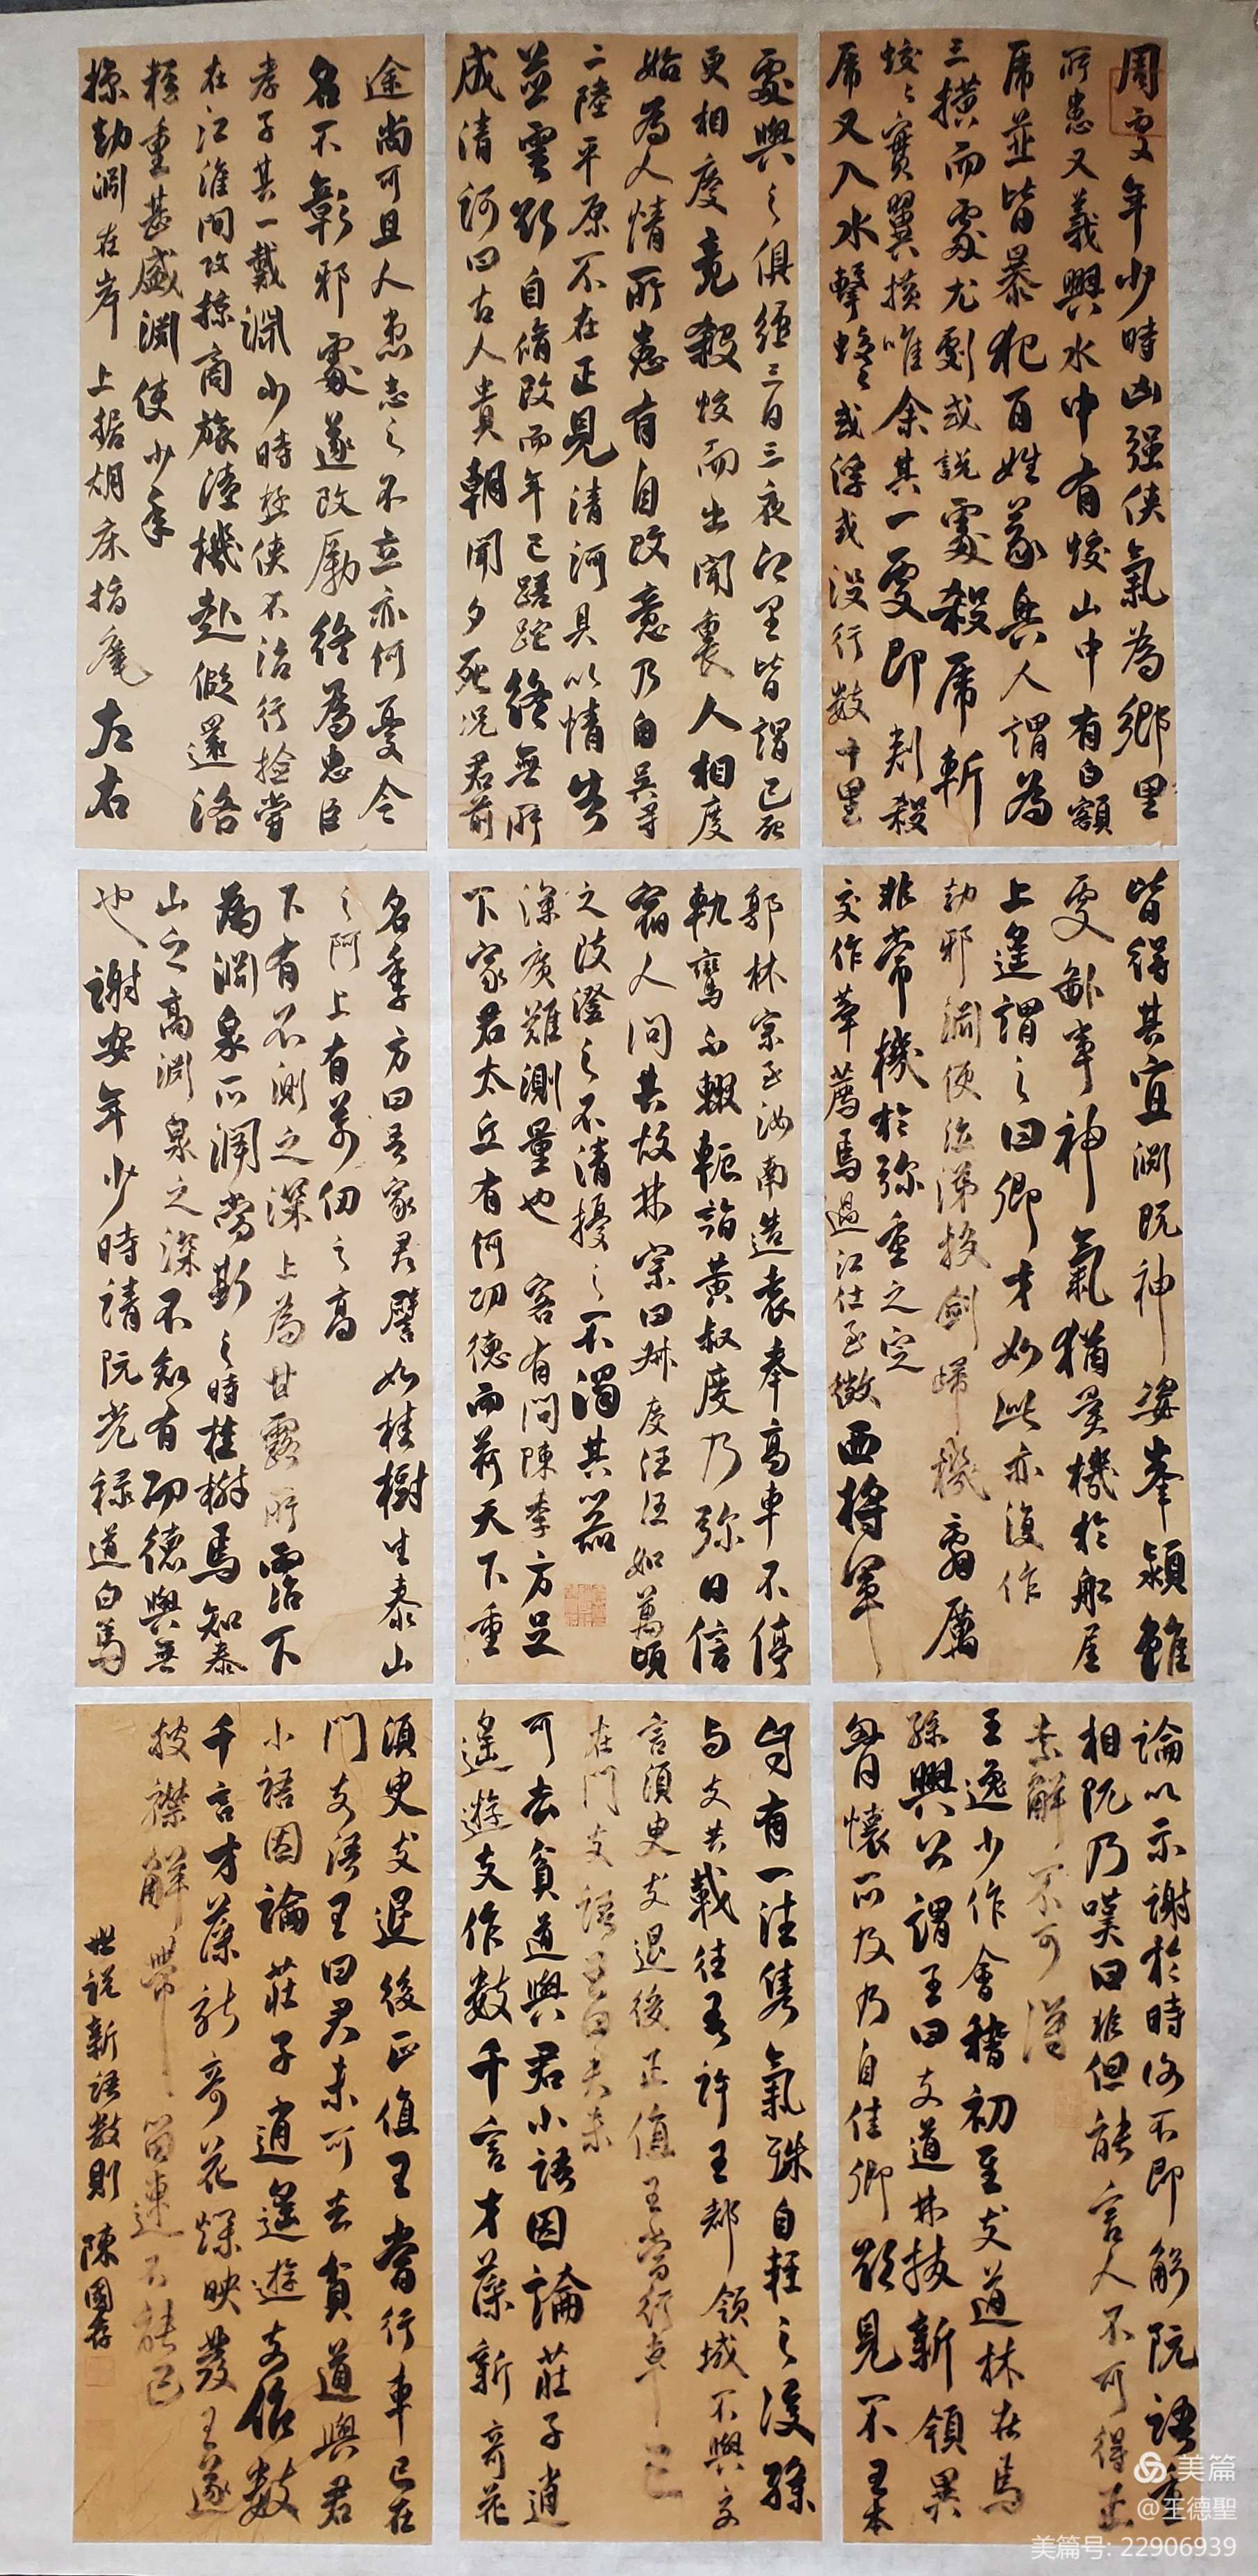 周處年少時凶强俠氣為鄉里
所患又義興水中有蛟山中有白額
虎並皆暴犯百姓義興人謂為
三橫而處尤劇或說處殺虎斬
蛟蛟實冀橫唯余其一處即刺殺
虎又入水擊蛟蛟或浮或沒行數十里
處與之俱經三日三夜鄉里皆謂已死
更相慶竟殺蛟而出聞裏人相慶
始為人情所患有自改意乃自吳尋
二陸平原不在正見清河具以情告
並雲欲自脩改而年已蹉跎終無所
成清河曰古人貴朝聞夕死況君前
途尚可且人患志之不立亦何憂令
名不彰邪處遂改勵終為忠臣
孝子其一戴淵少時遊俠不治行檢嘗
在江淮間攻掠商旅陸機赴假還洛
輜重甚盛淵使少年
掠劫淵在岸上據胡床指麾左右
皆得其宜淵既神姿峯穎雖
處鄙事神氣猶異機於船屋
上遙謂之曰卿才如此亦復作
劫邪淵便泣涕投劍歸機辭厲
非常機於弥重之定
交作筆薦焉過江仕至徵西將軍
郭林宗至汝南造袁奉高車不停
軌鸞不輟軛詣黃叔度乃弥日信
宿人問其故林宗曰叔度汪汪如萬頃
之陂澄之不清擾之不濁其器
深廣難測量也 客有問陳季方足
下家君太丘有何功德而荷天下重
名季方曰吾家君譬如桂樹生泰山
之阿上有萬仞之高
下有不測之深上為甘露所霑下
為淵泉所潤當斯之時桂樹焉知泰
山之高淵泉之深不知有功德與無
也 謝安年少時請阮光祿道白馬
論以示謝於時謝不即解阮語重
相阮乃嘆曰非但能言人不可得正
索解不可得
王逸少作會稽初至支道林在焉
孫興公謂王曰支道林拔新領異
胷懷所及乃自佳卿欲見不王本
自有一往隽氣殊自輕之後孫
与支共載往王許王都領域不與交
言須臾支退後正值王當行車已
在門支語王曰君未
可去貧道與君小語因論莊子逍
遙遊支作數千言才藻新奇花
須臾支退後正值王當行車已在
門支語王曰君未可去貧道與君
小語因論莊子逍遙遊支作數
千言才藻新奇花爛映發王遂
披襟解帶留連不能已
世說新語數則 陳國存
美篇
@王德聖
美篇号: 22906939